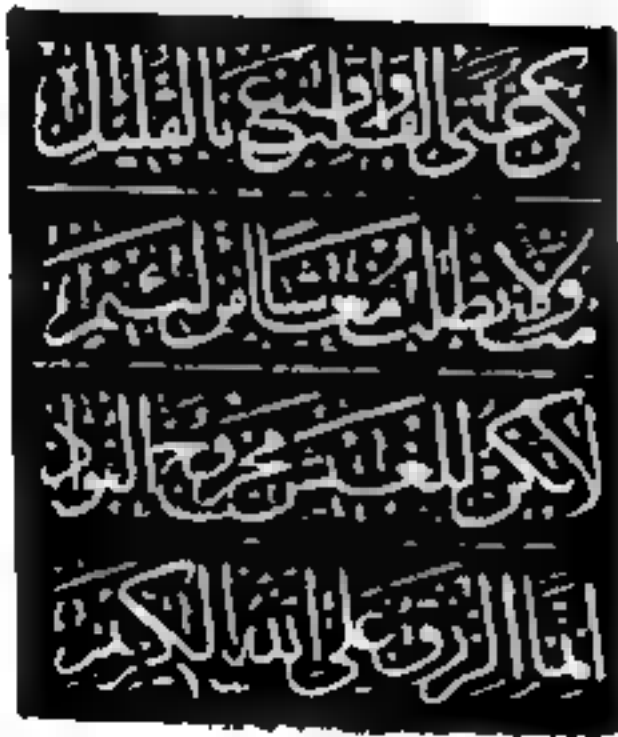 كن غني القلب واقنع بالقليل
مت ولا تطلب معاشا من لئيم
لا تكن للعيش مجروح الفؤاد
انما الرزق على الله الكريم